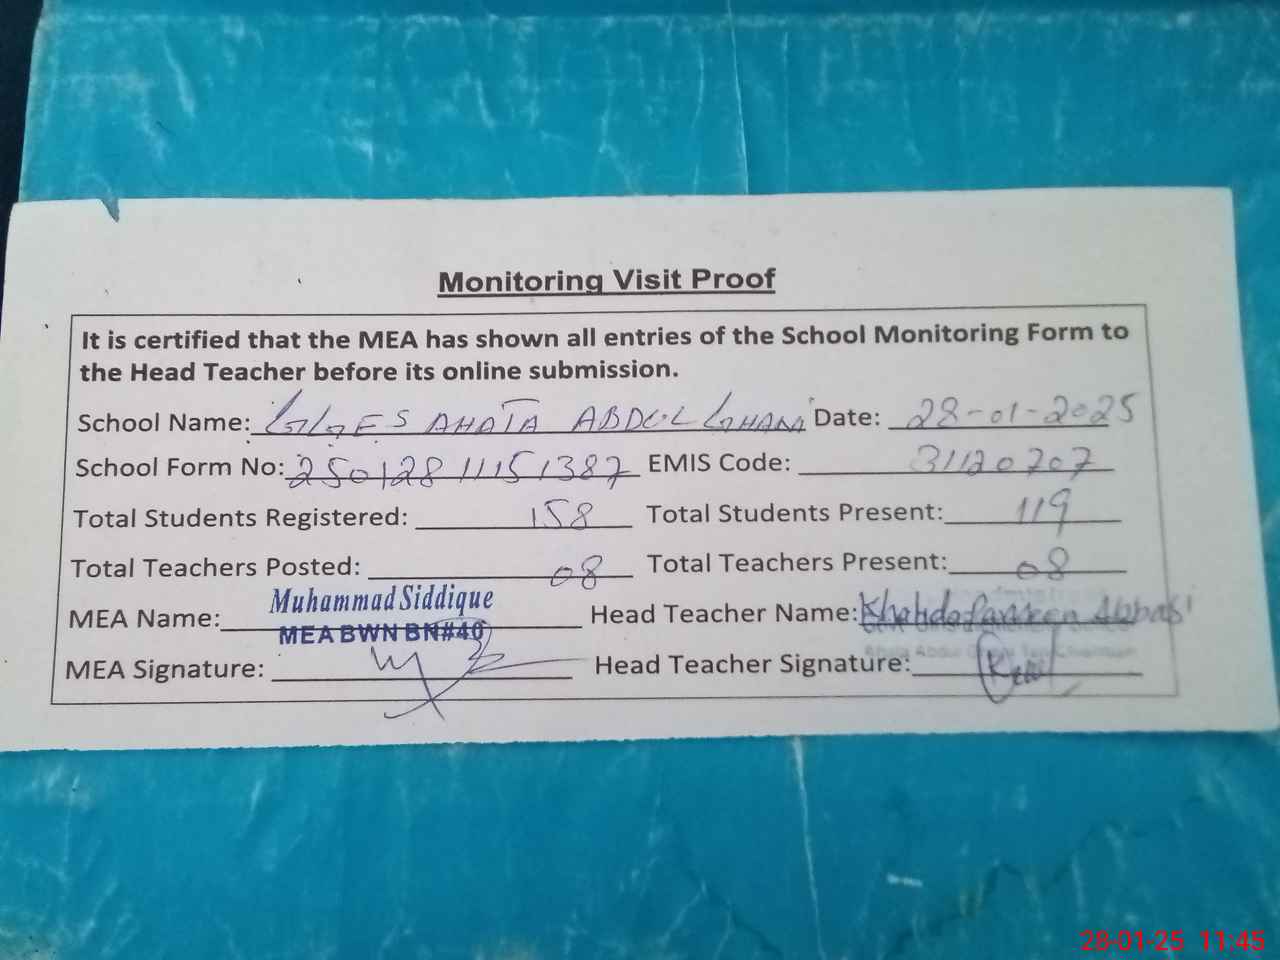 Monitoring Visit Proof
It is certified that the MEA has shown all entries of the School Monitoring Form to
the Head Teacher before its online submission.
School Name: GGES AHATA ABDUL GHANI Date: 28-01-2025
School Form No: 25012811151387 EMIS Code: 31120707
Total Students Registered: 158 Total Students Present: 119
Total Teachers Posted: 08 Total Teachers Present: 08
MEA Name: Muhammad Siddique Head Teacher Name: Abbasi
MEA BWN BN#40
MEA Signature: Head Teacher Signature:
28-01-25 11:45